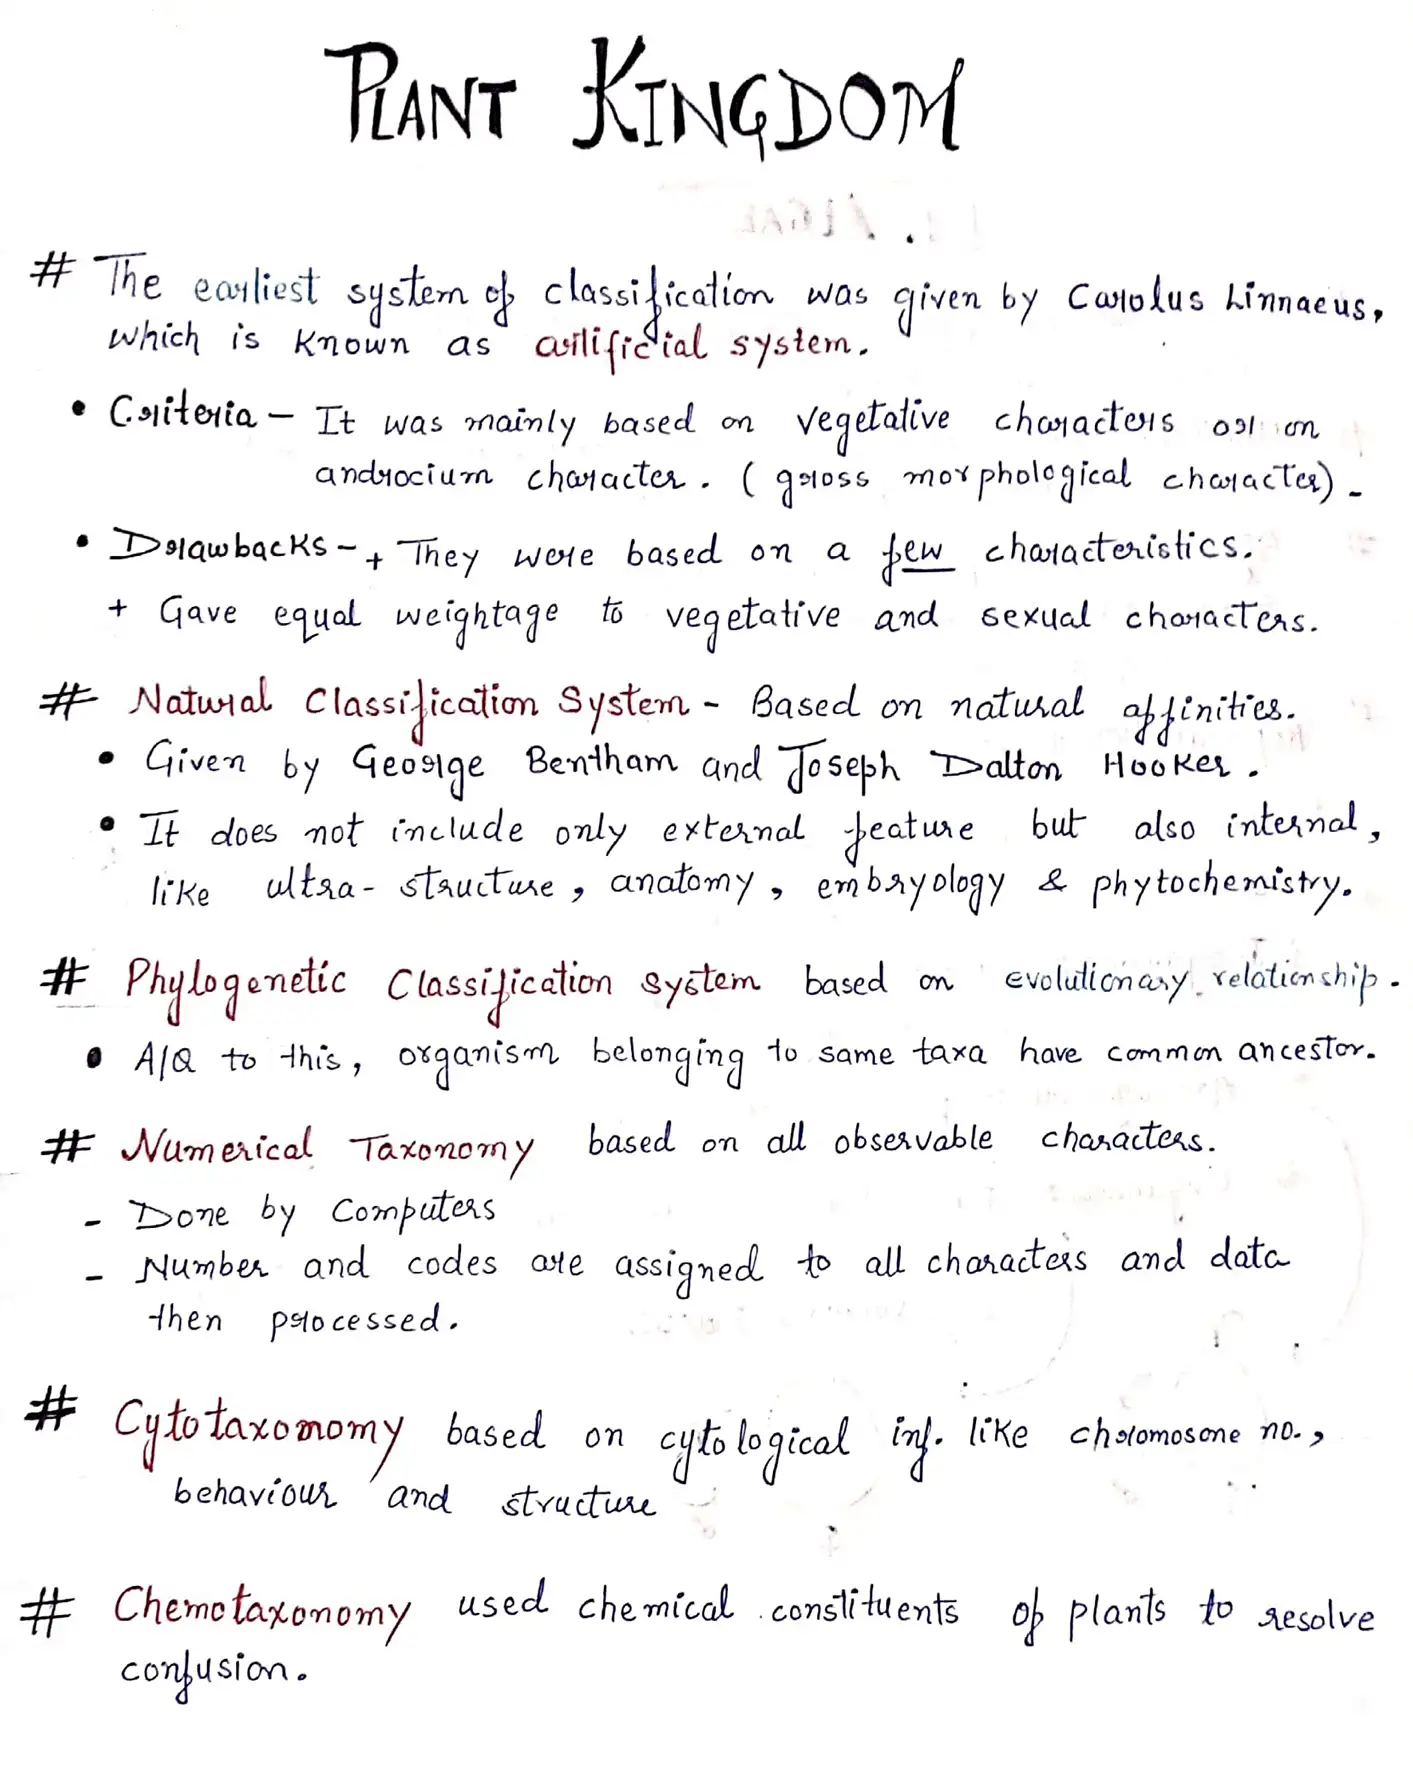 PLANT KINGDOM
# The earliest system of classification was given by Carolus Linnaeus,
which is known as artificial system.
• Criteria – It was mainly based on vegetative characters or on
androcium character. (gross morphological character) -
• Drawbacks - + They were based on a few characteristics.
+ Gave equal weightage to vegetative and sexual characters.
# Natural Classification System - Based on natural affinities.
• Given by George Bentham and Joseph Dalton Hooker.
• It does not include only external feature but also internal,
like ultra-structure, anatomy, embryology & phytochemistry.
# Phylogenetic Classification System based on evolutionary relationship.
• A/Q to this, organism belonging to same taxa have common ancestor.
# Numerical Taxonomy based on all observable characters.
- Done by Computers
- Number and codes are assigned to all characters and data
then processed.
# Cytotaxonomy based on cytological inf. like chromosome no.,
behaviour and structure
# Chemotaxonomy used chemical constituents of plants to resolve
confusion.